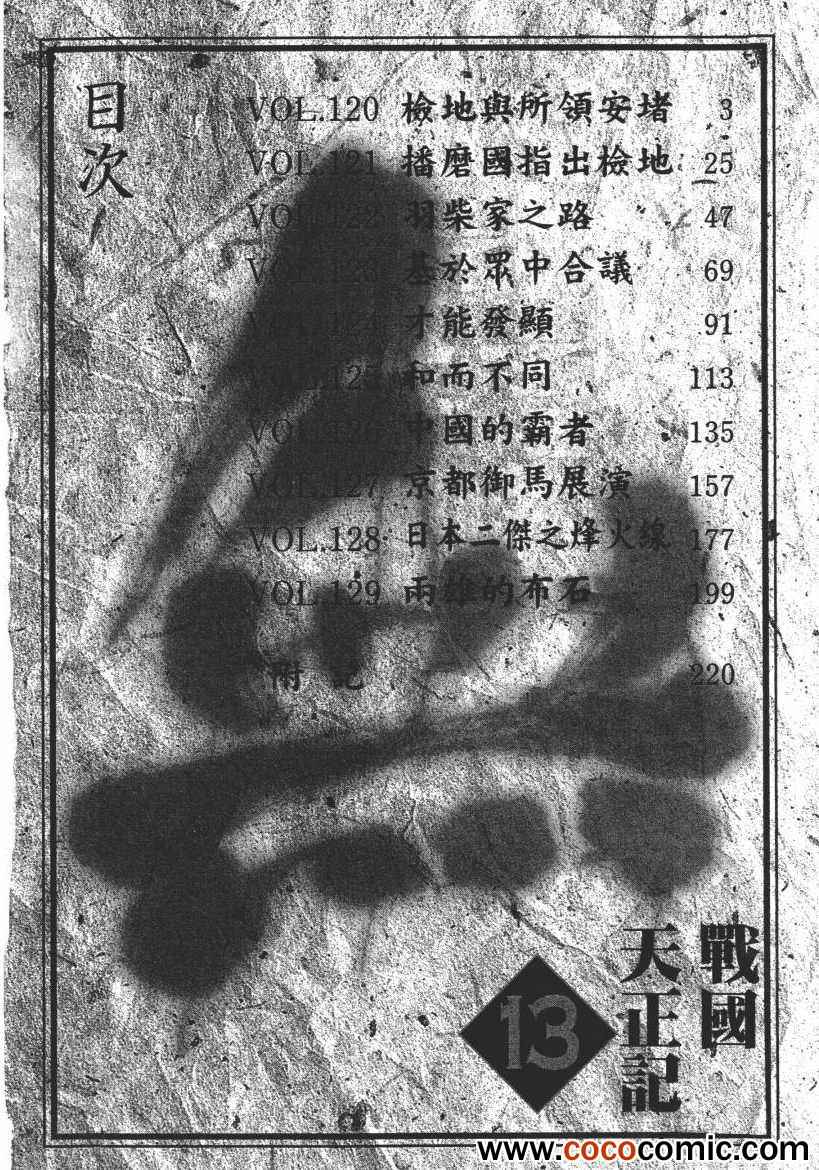 目次
VOL.120 檢地與所領安堵 3
VOL.121 播磨國指出檢地 25
VOL.122 羽柴家之路 47
VOL.123 基於眾中合議 69
VOL.124 才能發顯 91
VOL.125 和而不同 113
VOL.126 中國的霸者 135
VOL.127 京都御馬展演 157
VOL.128 日本二傑之烽火線 177
VOL.129 兩雄的布石 199
附記 220
戰國
天正記
13
www.cococomic.com